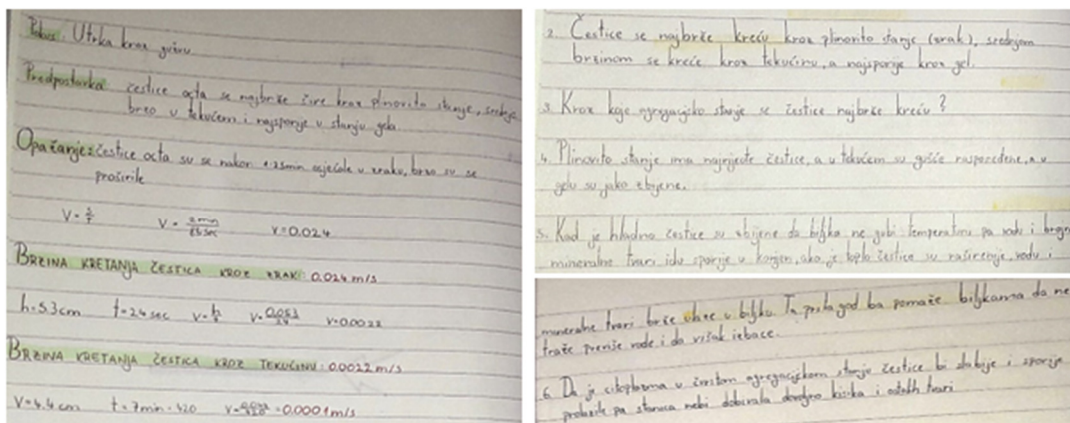 Pokus: Utrka kroz gužvu
Predpostavka čestice octa se najbrže šire kroz plinovito stanje, srednje
brzo u tekućem i najsporije u stanju gela
Opažanje: čestice octa su se nakon 1.25min osjećale u zraku, brzo su se
proširile
v=s/t v= 2min/83sec v=0.024
BRZINA KRETANJA ČESTICA KROZ ZRAK: 0.024 m/s
h=5.3cm t=24sec v=h/t v=0.053/24 v=0.0022
BRZINA KRETANJA ČESTICA KROZ TEKUĆINU: 0.0022 m/s
v=4.4cm t=7min=420 =0.0001 m/s
2. Čestice se najbrže kreću kroz plinovito stanje (zrak), srednjom
brzinom se kreće kroz tekućinu, a najsporije kroz gel.
3. Kroz koje agregacijsko stanje se čestice najbrže kreću?
4. Plinovito stanje ima najrjeđe čestice, a u tekućem su gušće raspoređene, a u
gelu su jako zbijene.
5. Kad je hladno čestice su zbijene da biljka ne gubi temperaturu pa voda i brojne
mineralne tvari idu sporije u korijen, ako je toplo čestice su raširenije, vodu i
mineralne tvari brže u biljku. Ta prilagodba pomaže biljkama da ne
traže previše vode i da višak izbace.
6. Da je citoplazma u čvrstom agregacijskom stanju čestice bi slabije i sporije
prolazile pa stanica nebi dobivala dovoljno kisika i ostalih tvari